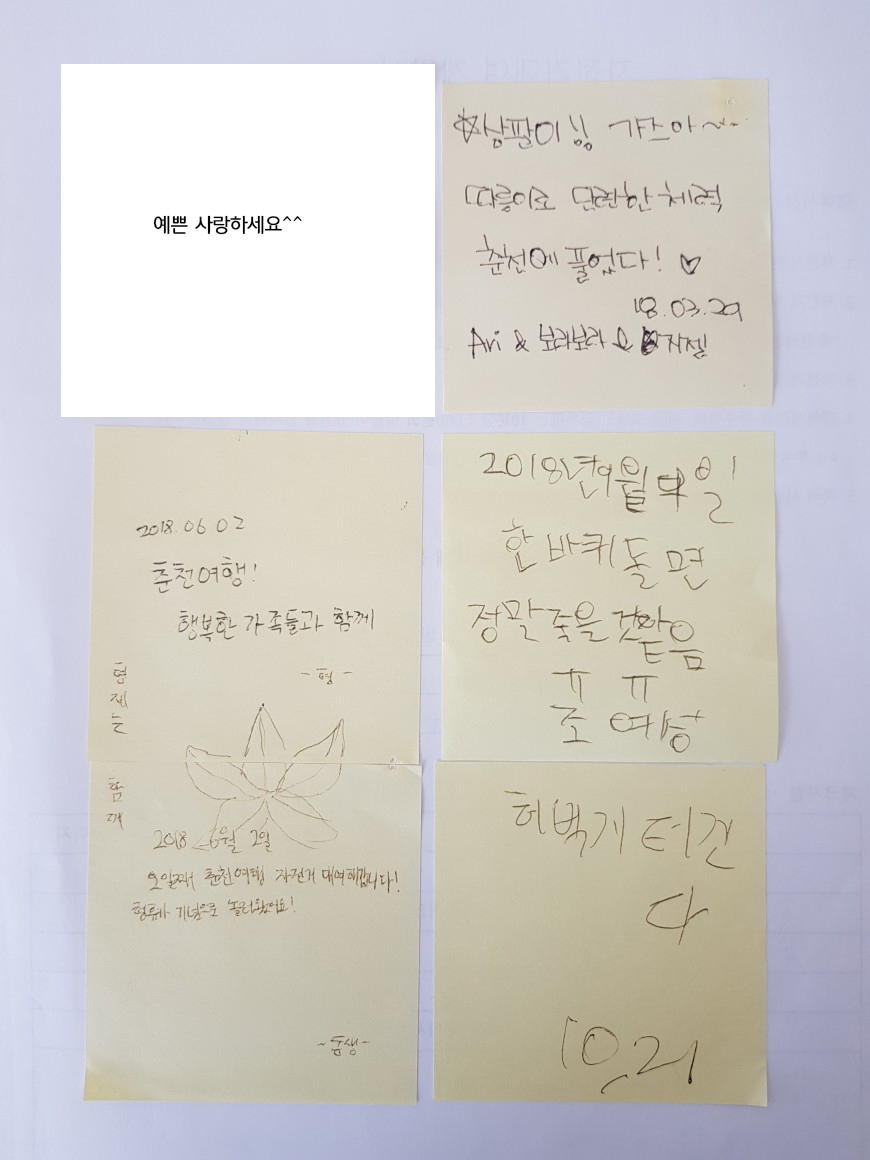 예쁜 사랑하세요^^
☆삼팔이님 가즈아~~
따릉이로 단련한 체력
춘천에 풀었다! ♡
18.03.29
Ari & 보라보라 & 지젤
2018.06 02
춘천여행!
행복한 가족들과 함께
- 형 -
형제는
함께
2018 6월 2일
오일째 춘천여행 자전거 대여해갑니다!
기념으로 놀러왔어요!
~동생-
2018년 9월 일
한 바퀴 돌면
정말 죽을 것 같음
ㅠ ㅠ
조 예성
허벅지 터진
다
10.21